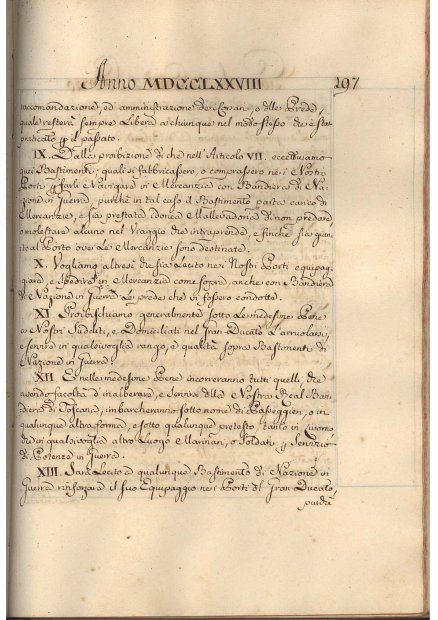 Anno MDCCLXXVIII 297
raccomandazione, ed amministrazione dei Corsari, o delle Prede,
quale resterà sempre Libera a chiunque nel modo stesso che è stato
praticato p il passato.
IX. Dalla proibizione di che nell'Articolo VII. eccettuiamo
quei Bastimenti, quali si fabbricassero, o comprassero nei Nostri
Porti p farli Navigare in Mercanzia con Bandiera di Na-
zione in Guerra, purchè in tal caso il Bastimento parta carico di
Mercanzie, e sia prestata idonea Mallevadoria di non predare
o molestare alcuno nel Viaggio che intraprende, e finchè sia giun-
to al Porto ove Le Mercanzie sono destinate.
X. Vogliamo altresì che sia Lecito nei Nostri Porti equipag-
giare, e spedire in Mercanzia come sopra, anche con Bandiera
di Nazione in Guerra Le prede che vi fossero condotte.
XI. Proibischiamo generalmente sotto Le medesime Pene
ai Nostri Sudditi, e Domiciliati nel Gran Ducato d'arruolarsi,
e servire in qualsivoglia rango, e qualità sopra Bastimenti di
Nazione in Guerra.
XII. E nelle medesime Pene incorreranno tutti quelli, che
avendo facoltà d'inalberare, e servirsi della Nostra Real Ban-
diera di Toscana, imbarcheranno sotto nome di Passeggieri, o in
qualunque altra forma, e sotto qualunque pretesto, tanto in Livorno
che in qualsivoglia altro Luogo Marinari, o Soldati p Servizio
di Potenze in Guerra.
XIII. Sarà Lecito a qualunque Bastimento di Nazione in
Guerra rinforzare il suo Equipaggio nei Porti del Gran Ducato,
purchè